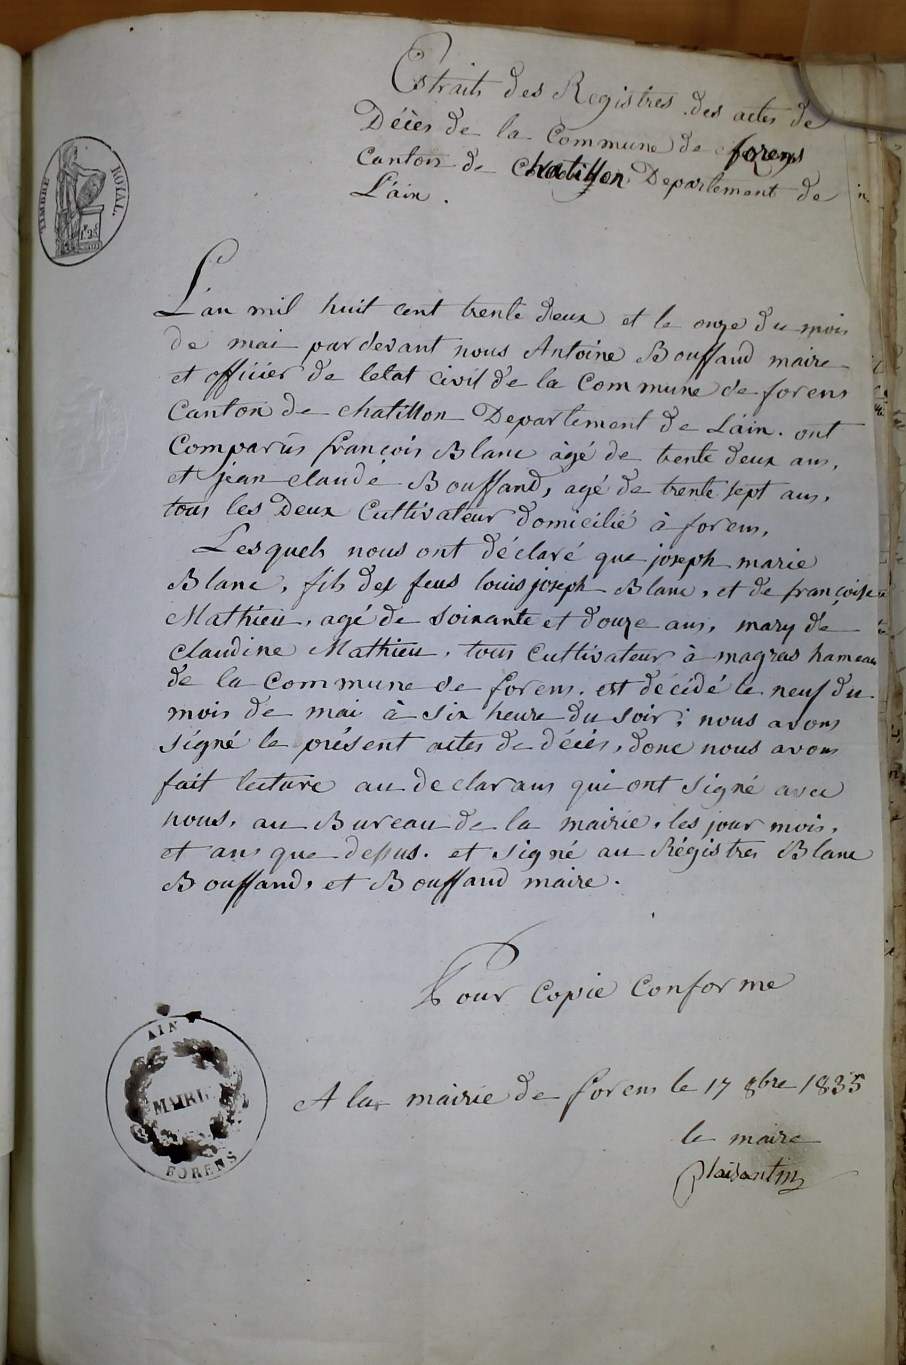 Extrait des Registres des actes de
Décès de la Commune de forens
Canton de chatillon Departement de
L'ain.
TIMBRE ROYAL.
L'an mil huit cent trente deux et le onze du mois
de mai pardevant nous Antoine Bouffand maire
et officier de letat civil de la Commune de forens
Canton de chatillon Departement de L'ain. ont
Comparûs françois Blanc âgé de trente deux ans,
et jean claude Bouffand, agé de trente sept ans,
tous les Deux Cultivateur domicilié à forens,
Lesquels nous ont déclaré que joseph marie
Blanc, fils des feus louis joseph Blanc, et de françoise
Mathieu, agé de soixante et douze ans, mary de
claudine Mathieu, tous Cultivateur à magras hameau
de la Commune de forens. est décidé le neuf du
mois de mai à six heure du soir; nous avons
signé le présent actes de décès, donc nous avons
fait lecture au declarans qui ont signé avec
nous, au Bureau de la mairie, les jour mois,
et ans que dessus. et signé au Régistres Blanc
Bouffand, et Bouffand maire.
Pour Copie Conforme
AIN
MAIRIE
FORENS
A la mairie de forens le 17 8bre 1835
le maire
Plaisantin